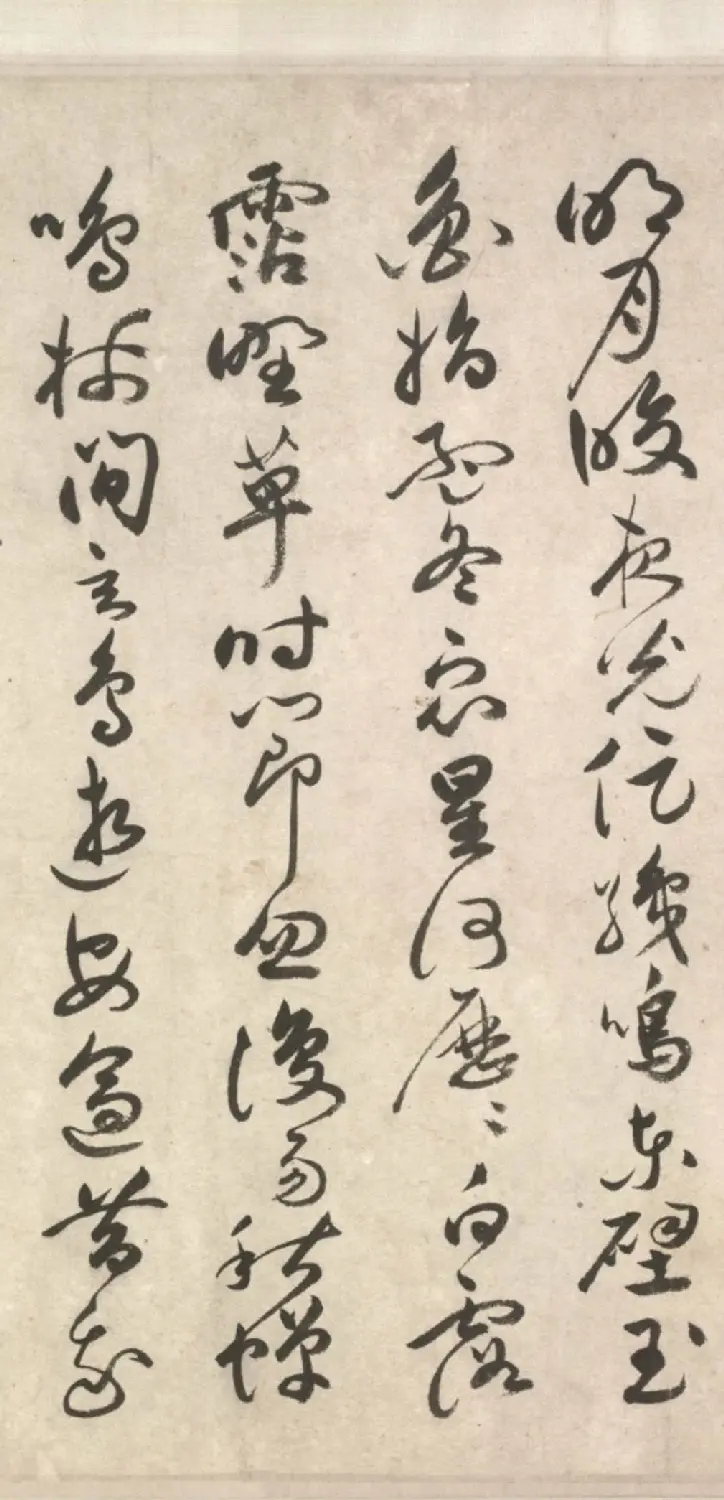 明月皎夜光促織鳴東壁玉
衡指孟冬衆星何歷〻白露
霑野草時節忽復易秋蟬
鳴樹間玄鳥逝安適昔我